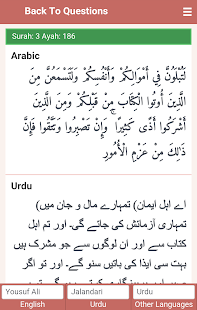 Back To Questions
Surah: 3 Ayah: 186
Arabic
لَتُبْلَوُنَّ فِي أَمْوَالِكُمْ وَأَنفُسِكُمْ وَلَتَسْمَعُنَّ مِنَ
الَّذِينَ أُوتُوا الْكِتَابَ مِن قَبْلِكُمْ وَمِنَ الَّذِينَ
أَشْرَكُوا أَذًى كَثِيرًا ۚ وَإِن تَصْبِرُوا وَتَتَّقُوا فَإِنَّ
ذَٰلِكَ مِنْ عَزْمِ الْأُمُورِ
Urdu
(اے اہل ایمان) تمہارے مال و جان میں
تمہاری آزمائش کی جائے گی۔ اور تم اہل
کتاب سے اور ان لوگوں سے جو مشرک ہیں
بہت سی ایذا کی باتیں سنو گے۔ اور تو اگر
Yousuf Ali
Jalandari
Urdu
English
Urdu
Other Languages